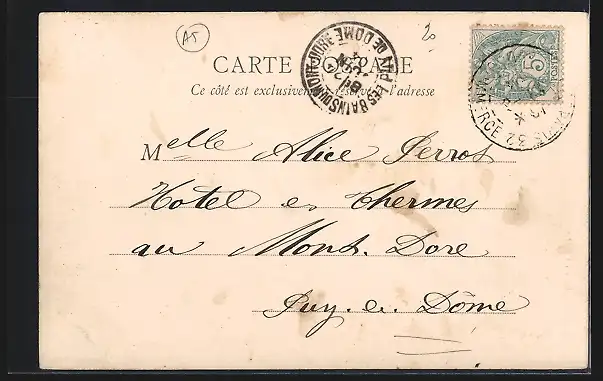 A5
20
CARTE POSTALE
Ce côté est exclusivement réservé à l'adresse
LES BAINS DU MONT-DORE PUY DE DOME
5
PARIS 32
Melle Alice Perrot
Hotel es Thermes
au Mont. Dore
Puy. e. Dôme